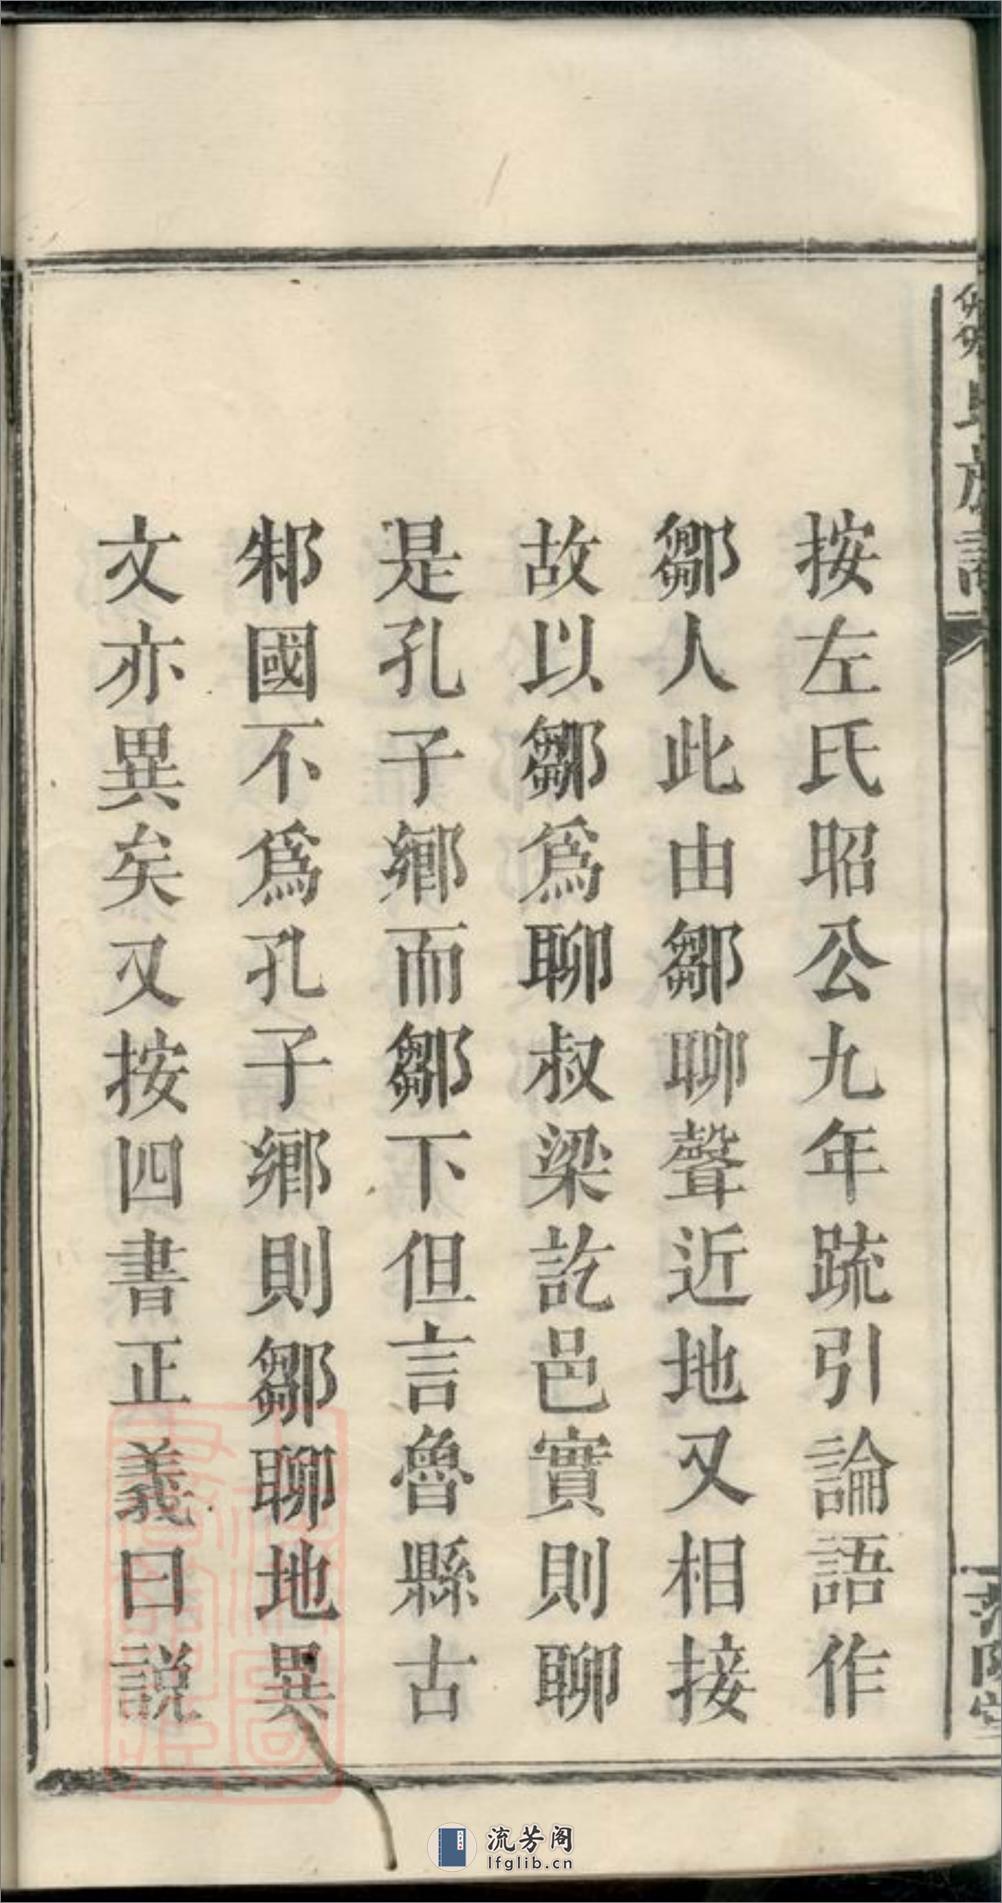 鄒氏族譜
范陽堂
按左氏昭公九年疏引論語作
鄒人此由鄒聊聲近地又相接
故以鄒爲聊叔梁訖邑實則聊
是孔子鄉而鄒下但言魯縣古
邾國不爲孔子鄉則鄒聊地異
文亦異矣又按四書正義曰説
流芳阁
lfglib.cn